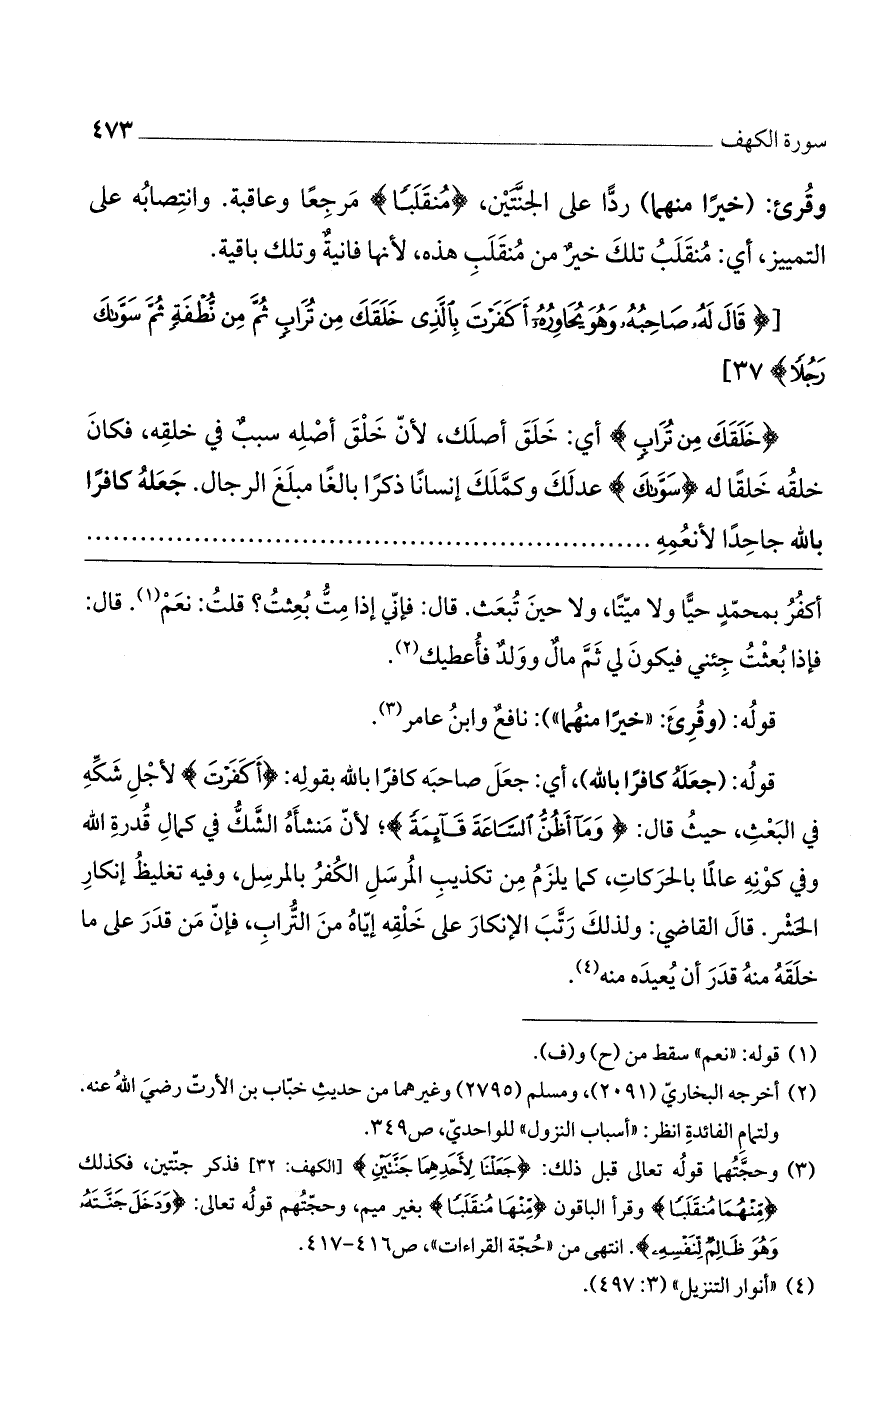 سورة الكهف ٤٧٣
وقُرئ: (خيرًا منهما) ردًّا على الجنَّتَيْن، ﴿مُنقَلَبًا﴾ مَرجِعًا وعاقبة. وانتِصابُه على
التمييز، أي: مُنقَلَبُ تلكَ خيرٌ من مُنقَلَبِ هذه، لأنها فانيةٌ وتلك باقية.
[﴿قَالَ لَهُۥ صَاحِبُهُۥ وَهُوَ يُحَاوِرُهُۥٓ أَكَفَرْتَ بِٱلَّذِى خَلَقَكَ مِن تُرَابٍ ثُمَّ مِن نُّطْفَةٍ ثُمَّ سَوَّىٰكَ
رَجُلًا﴾ ٣٧]
﴿خَلَقَكَ مِن تُرَابٍ﴾ أي: خَلَقَ أصلَك، لأنّ خَلْقَ أصْلِه سببٌ في خلقِه، فكانَ
خلقُه خَلقًا له ﴿سَوَّىٰكَ﴾ عدلَكَ وكمَّلَكَ إنسانًا ذكرًا بالغًا مبلَغَ الرجال. جَعَلهُ كافرًا
بالله جاحِدًا لأنعُمِهِ ...............................................................
أكفُرُ بمحمّدٍ حيًّا ولا ميّتًا، ولا حينَ تُبعَث. قال: فإنّي إذا مِتُّ بُعِثتُ؟ قلتُ: نعَمْ(١). قال:
فإذا بُعثْتُ جِئني فيكونَ لي ثَمَّ مالٌ ووَلدٌ فأُعطيك(٢).
قولُه: (وقُرِئَ: «خيرًا منهُما»): نافعٌ وابنُ عامر(٣).
قولُه: (جعَلَهُ كافرًا بالله)، أي: جعَلَ صاحبَه كافرًا بالله بقولِه: ﴿أَكَفَرْتَ﴾ لأجْلِ شَكِّهِ
في البَعْثِ، حيثُ قال: ﴿وَمَآ أَظُنُّ ٱلسَّاعَةَ قَآئِمَةً﴾؛ لأنّ مَنشأَهُ الشَّكُّ في كمالِ قُدرةِ الله
وفي كوْنِهِ عالمًا بالحَركاتِ، كما يلزَمُ مِن تكذيبِ المُرسَلِ الكُفرُ بالمرسِل، وفيه تغليظُ إنكارِ
الحَشْر. قالَ القاضي: ولذلكَ رَتَّبَ الإنكارَ على خَلْقِه إيّاهُ منَ التُّرابِ، فإنّ مَن قدَرَ على ما
خلَقَهُ منهُ قدَرَ أن يُعيدَه منه(٤).
(١) قوله: «نعم» سقط من (ح) و(ف).
(٢) أخرجه البخاريّ (٢٠٩١)، ومسلم (٢٧٩٥) وغيرهما من حديثِ خبّاب بن الأرتّ رضيَ اللهُ عنه.
ولتمام الفائدةِ انظر: «أسباب النزول» للواحديّ، ص٣٤٩.
(٣) وحجَّتُهما قولُه تعالى قبل ذلك: ﴿جَعَلْنَا لِأَحَدِهِمَا جَنَّتَيْنِ﴾ [الكهف: ٣٢] فذكر جنّتين، فكذلك
﴿مِّنْهُمَا مُنقَلَبًا﴾ وقرأ الباقون ﴿مِّنْهَا مُنقَلَبًا﴾ بغير ميم، وحجّتُهم قولُه تعالى: ﴿وَدَخَلَ جَنَّتَهُۥ
وَهُوَ ظَالِمٌ لِّنَفْسِهِۦ﴾. انتهى من «حُجّة القراءات»، ص٤١٦-٤١٧.
(٤) «أنوار التنزيل» (٣: ٤٩٧).